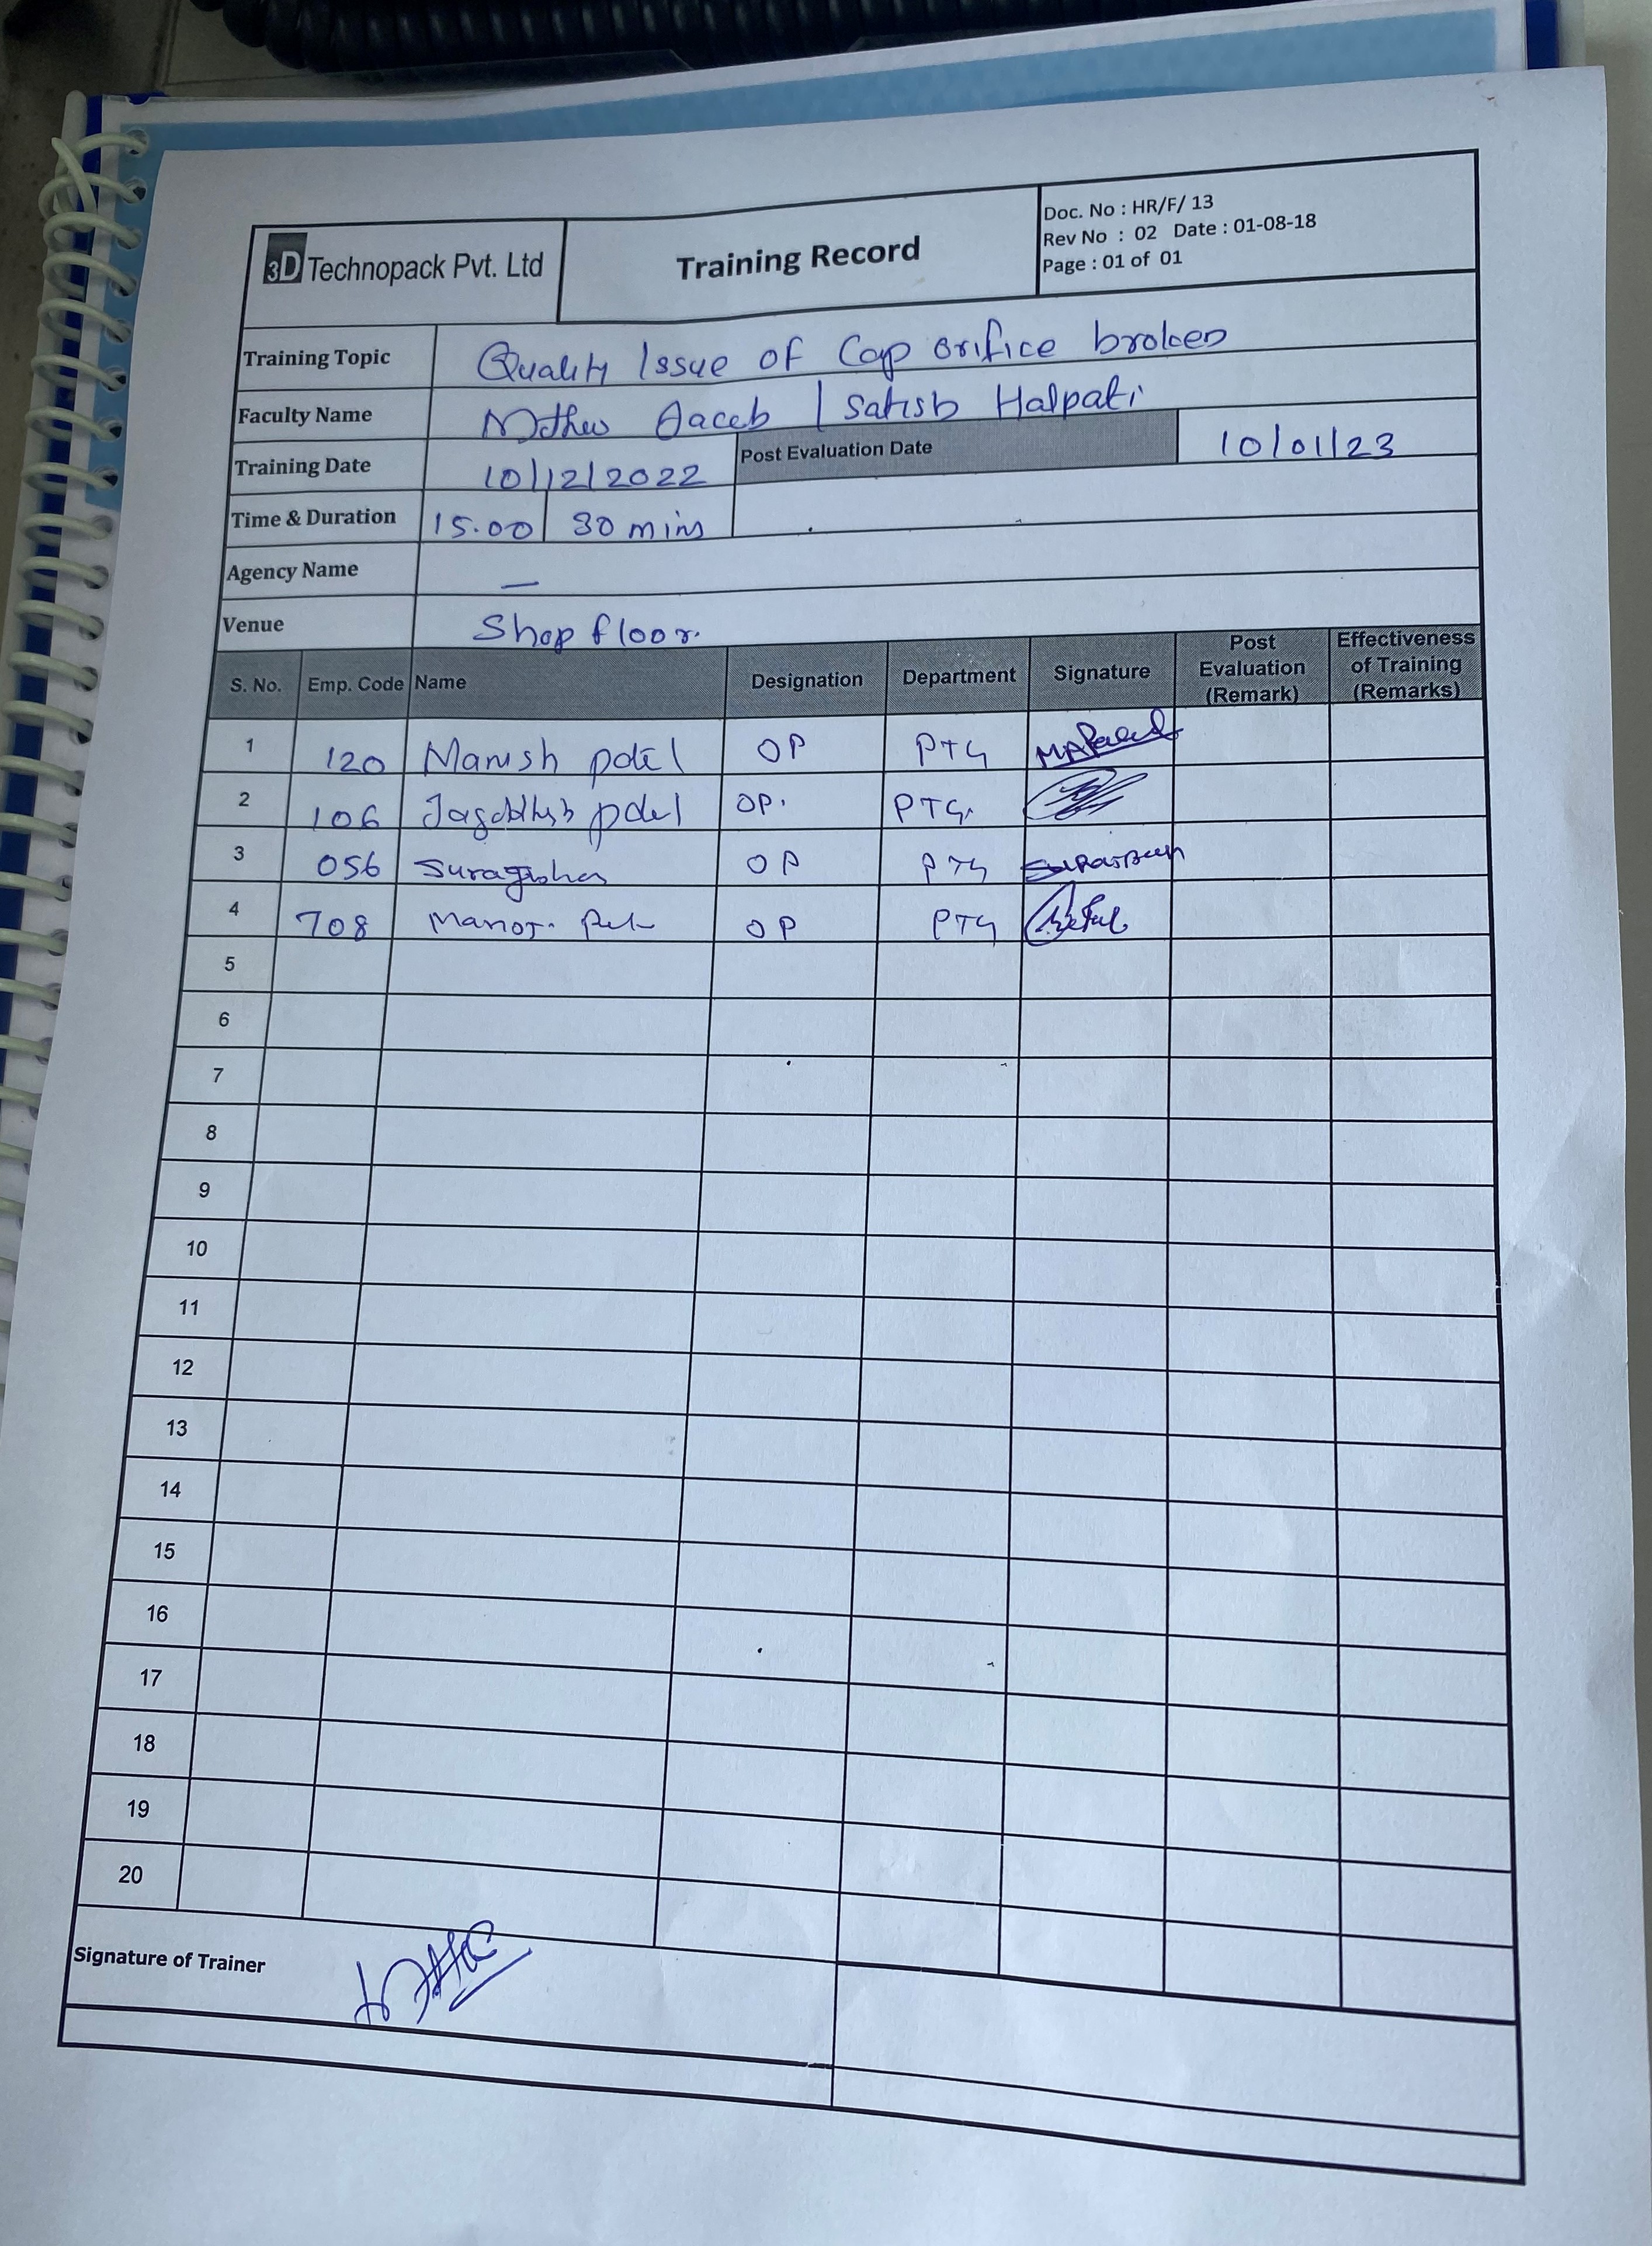 3D Technopack Pvt. Ltd
Training Record
Doc. No : HR/F/ 13
Rev No : 02 Date : 01-08-18
Page : 01 of 01
Training Topic Quality Issue of Cap orifice broken
Faculty Name Mathew Jaceb | Satish Halpati
Training Date 10/12/2022 Post Evaluation Date 10/01/23
Time & Duration 15.00 30 mins
Agency Name —
Venue Shop floor.
S. No. Emp. Code Name Designation Department Signature Post Evaluation (Remark) Effectiveness of Training (Remarks)
1 120 Manish patel OP PTG
2 106 Jagdish patel OP. PTG.
3 056 OP PTG
4 708 Manoj. OP PTG
5
6
7
8
9
10
11
12
13
14
15
16
17
18
19
20
Signature of Trainer